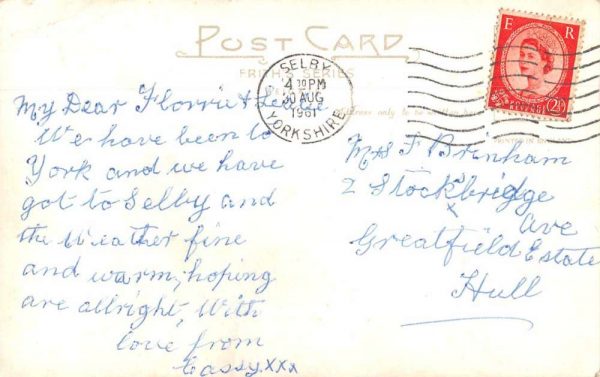 POST CARD
FRITH'S SERIES
SELBY
4 30 PM
30 AUG
1961
YORKSHIRE
E R
POSTAGE REVENUE
2½D
Address only to be written here
PRINTED IN
My Dear Florrie &
We have been to
York and we have
got to Selby and
the Weather fine
and warm, hoping
are allright, With
love from
Cassy xxx
Mrs F Brinham
2 Stockbridge
x Ave
Greatfield Estate
Hull